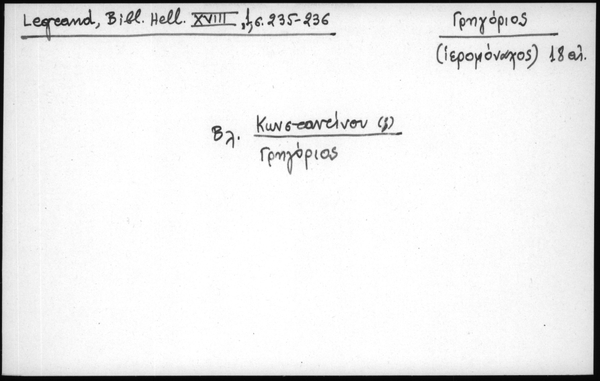 Legrand, Bibl. Hell. XVIII, 1, σ. 235-236
Γρηγόριος
(ἱερομόναχος) 18 αἰ.
Βλ. Κωνσταντίνου (;)
Γρηγόριος